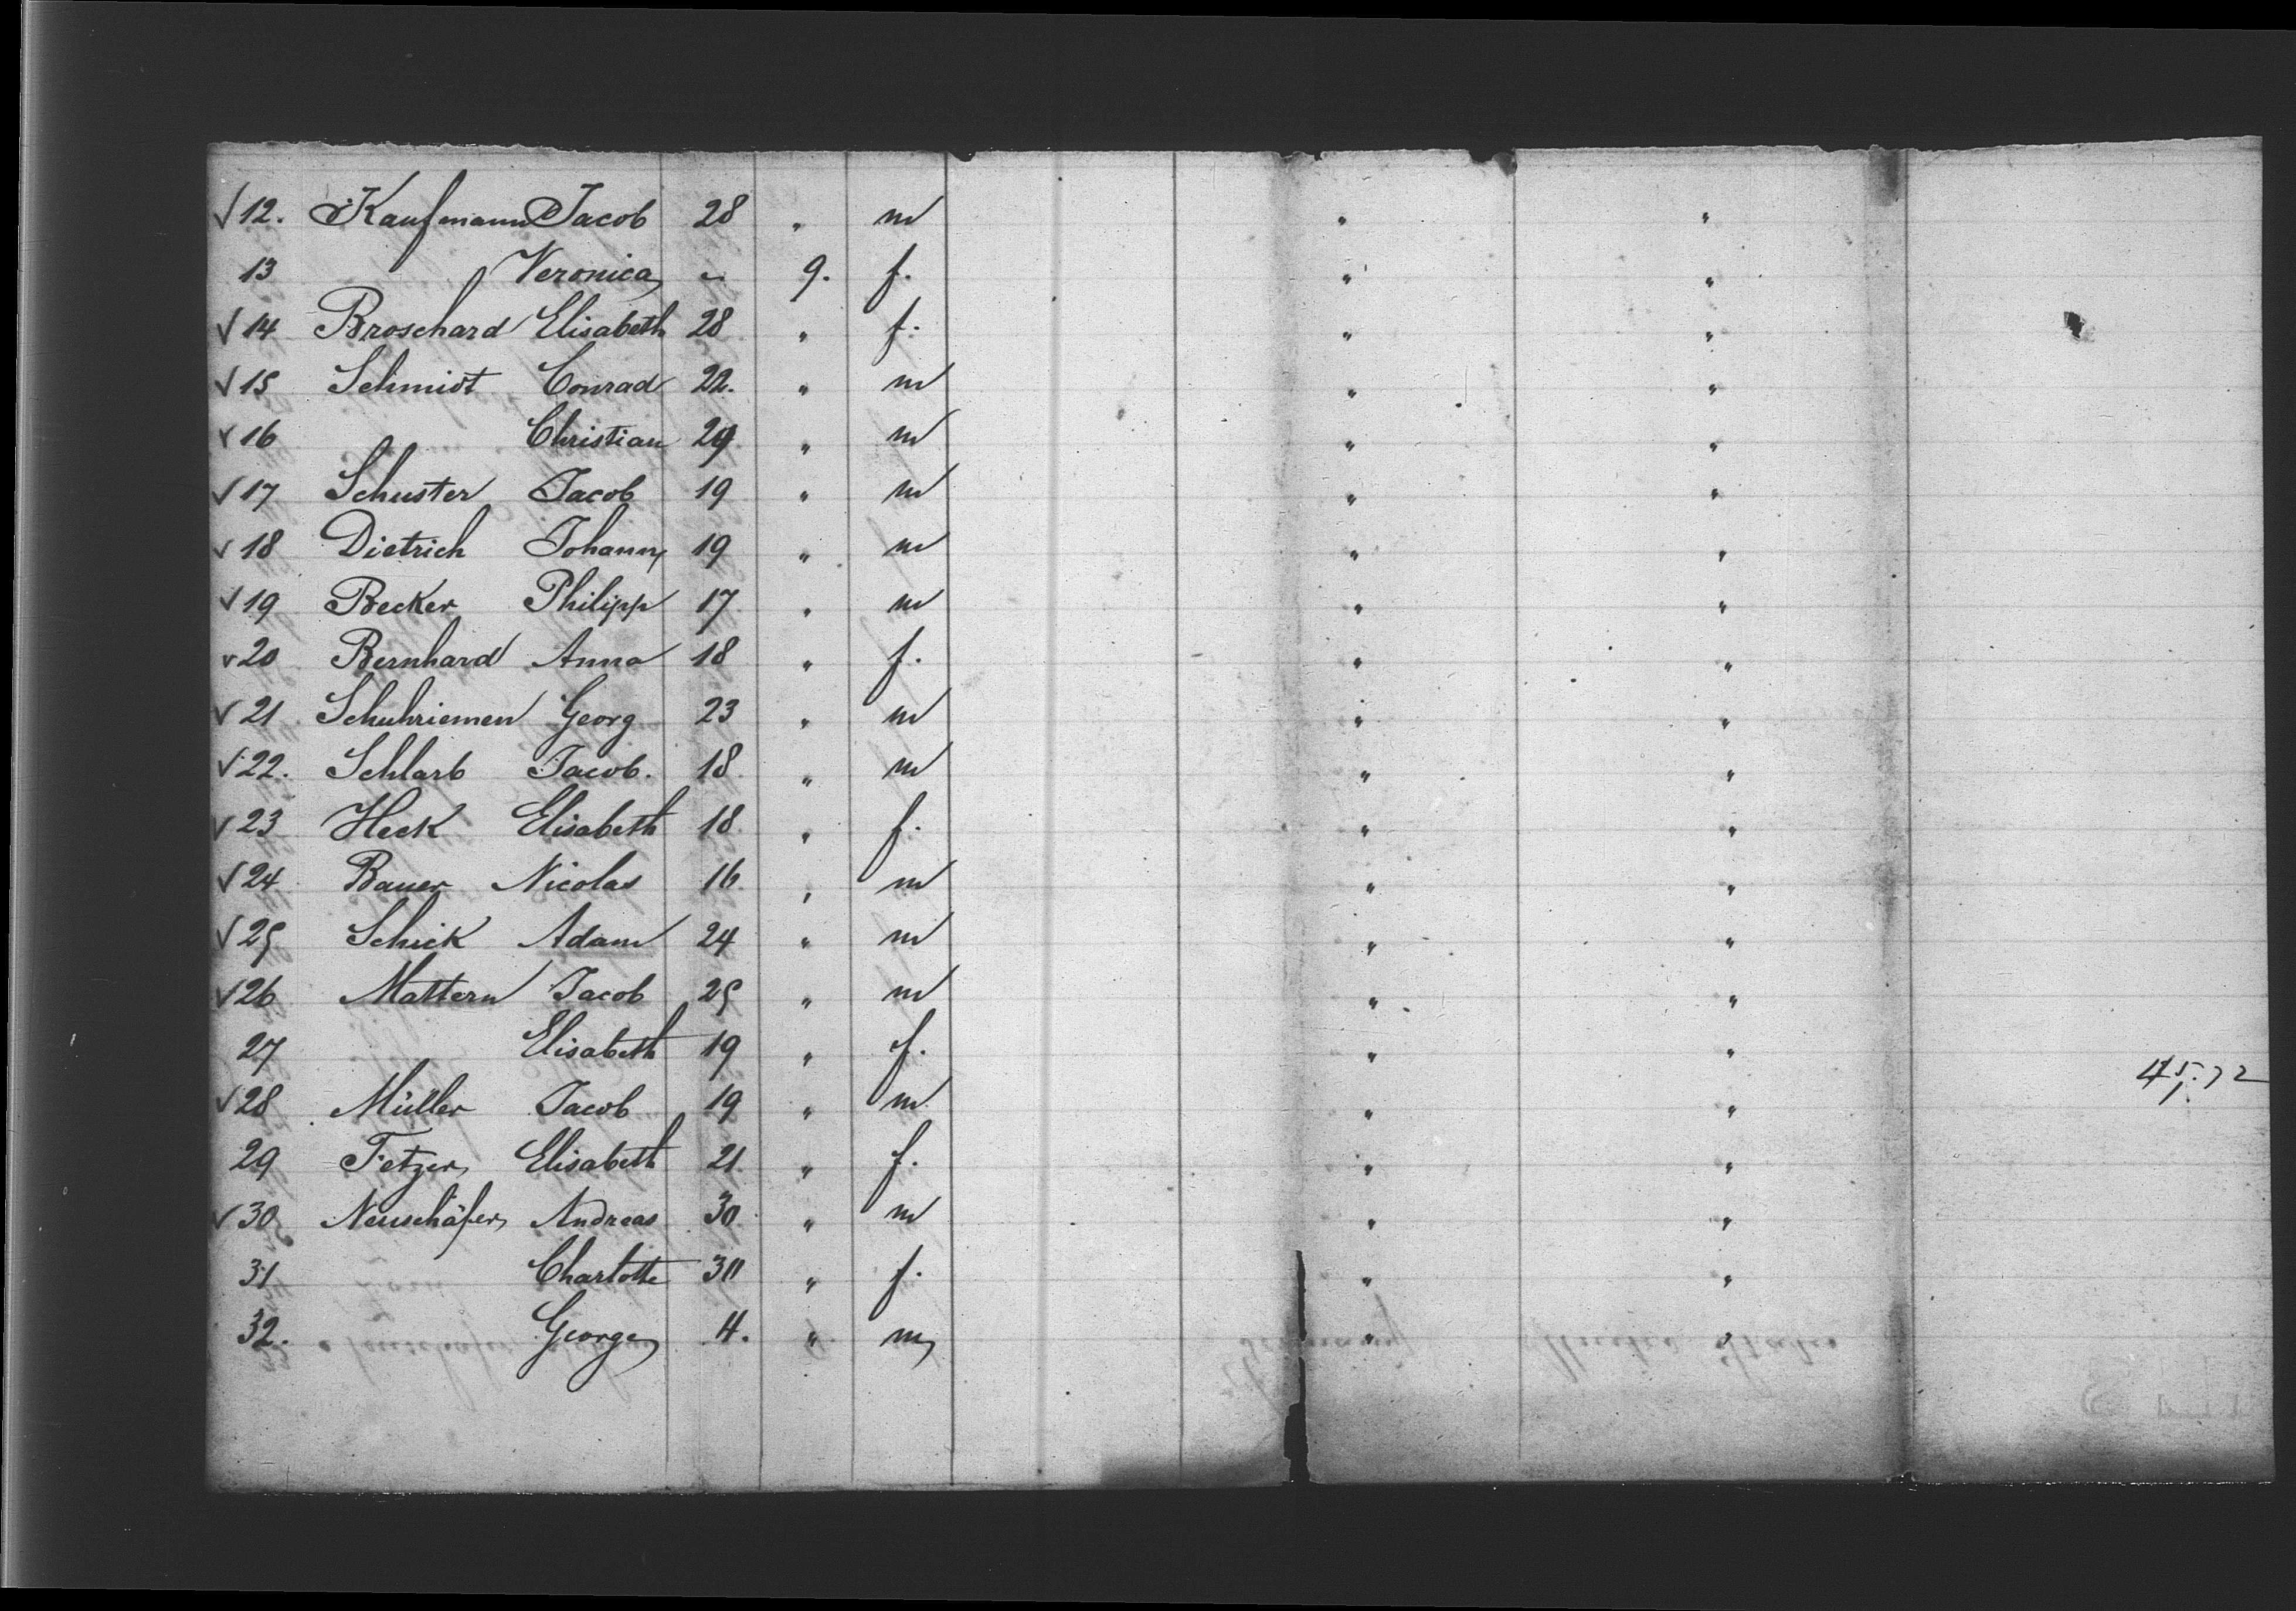 √ 12. Kaufmann Jacob 28 " m " "
13 Veronica " 9. f. " "
√ 14 Broschard Elisabeth 28 " f. " "
√ 15 Schmidt Conrad 22. " m " "
√ 16 Christian 29 " m " "
√ 17 Schuster Jacob 19 " m " "
√ 18 Dietrich Johann 19 " m " "
√ 19 Becker Philipp 17 " m " "
√ 20 Bernhard Anna 18 " f. " "
√ 21 Schuhriemen Georg 23 " m " "
√ 22. Schlarb Jacob. 18 " m " "
√ 23 Heck Elisabeth 18 " f. " "
√ 24 Bauer Nicolas 16 " m " "
√ 25 Schick Adam 24 " m " "
√ 26 Mattern Jacob 25 " m " "
27 Elisabeth 19 " f. " "
√ 28 Müller Jacob 19 " m " "
29 Fetzer Elisabeth 21 " f. " "
√ 30 Neuschäfer Andreas 30 " m " "
31 Charlotte 30 " f. " "
32. George 4. " m " "